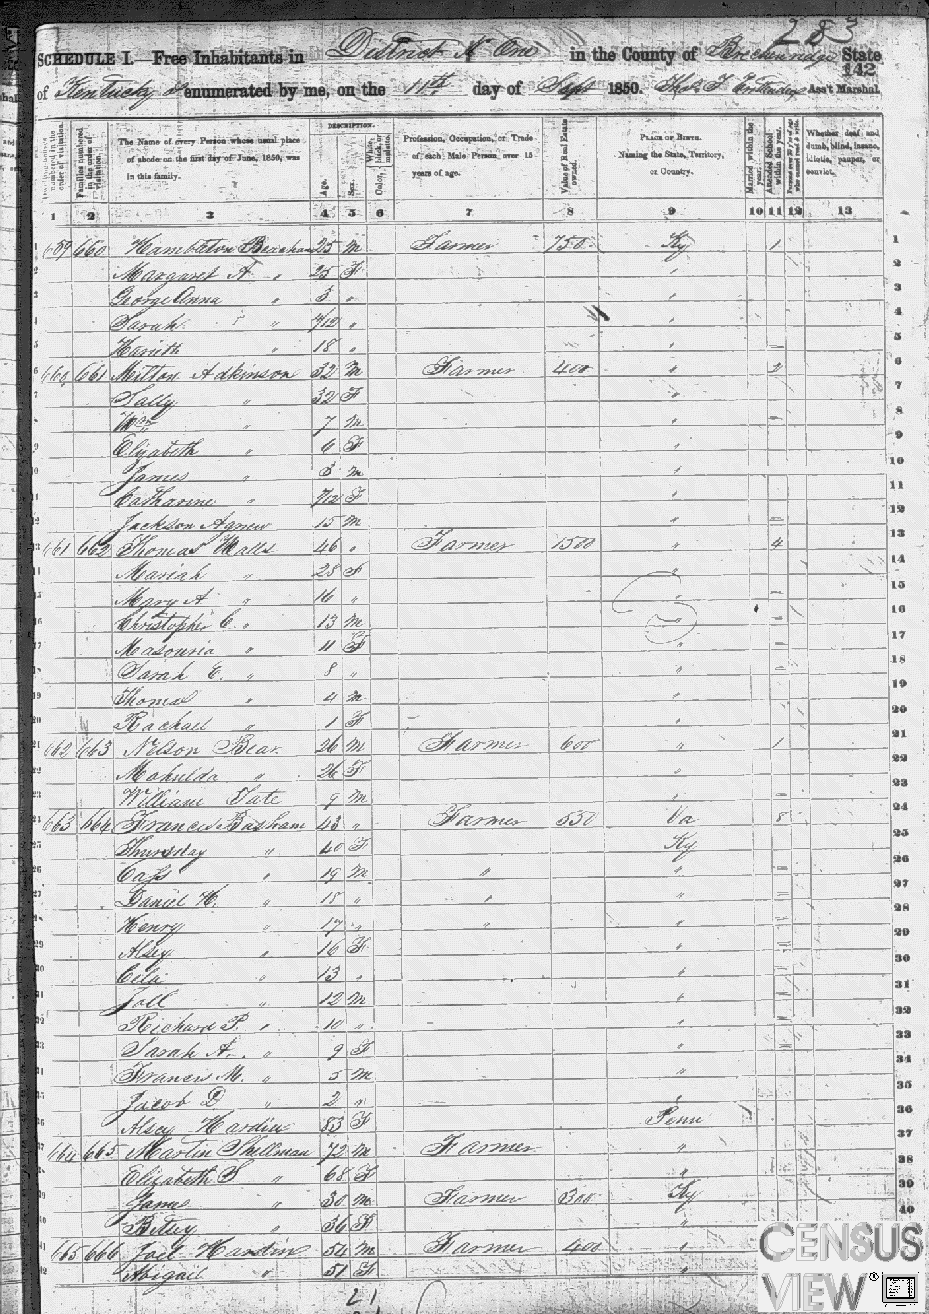 283
SCHEDULE I.—Free Inhabitants in District No One in the County of Breckenridge State
142
of Kentucky enumerated by me, on the 11th day of Sept 1850. Ass't Marshal.
DESCRIPTION.
The Name of every Person whose usual place of abode on the first day of June, 1850, was in this family.
Age.
Sex.
Color, White, black, or mulatto.
Profession, Occupation, or Trade of each Male Person over 15 years of age.
Value of Real Estate owned.
PLACE OF BIRTH. Naming the State, Territory, or Country.
Married within the year.
Attended School within the year.
Whether deaf and dumb, blind, insane, idiotic, pauper, or convict.
1 2 3 4 5 6 7 8 9 10 11 12 13
659 660 Hambleton Beacham 25 M Farmer 750 Ky 1 1
Margaret A " 25 F " 2
George Anna " 3 " " 3
Sarah " 7/12 " " 4
18 " " 5
660 661 Milton Adkinson 32 M Farmer 400 " 2 6
Sally " 32 F " 7
Wm " 7 M " 8
Elizabeth " 6 F " 9
James " 3 M " 10
Catharine " 7/12 F " 11
Jackson Agnew 15 M " 12
661 662 Thomas Walls 46 " Farmer 1500 " 4 13
Mariah " 28 F " 14
Mary A " 16 " " 15
Christopher C. " 13 M " 16
Masouria " 11 F " 17
Sarah E. " 8 " " 18
Thomas " 4 M " 19
Rachael " 1 F " 20
662 663 Nelson Bear 26 M Farmer 600 " 1 21
Mahulda " 26 F " 22
William Tate 9 M 23
663 664 Francis Basham 43 " Farmer 550 Va 8 24
Thursday " 40 F Ky 25
Cass " 19 M " " 26
Daniel H. " 18 " " " 27
Henry " 17 " " " 28
Alsey " 16 F " 29
Cela " 13 " " 30
Joll " 12 M " 31
Richard P. " 10 " " 32
Sarah A. " 9 F " 33
Francis M. " 5 M " 34
Jacob D " 2 " " 35
Alsey Hardin 83 F Penn 36
664 665 Martin Shellman 72 M Farmer " 37
Elizabeth S " 68 F " 38
" 30 M Farmer 300 Ky 39
Betsey " 36 F " 40
665 666 Joel Hardin 54 M Farmer 400 "
Abigail " 51 F "
21
CENSUS
VIEW®